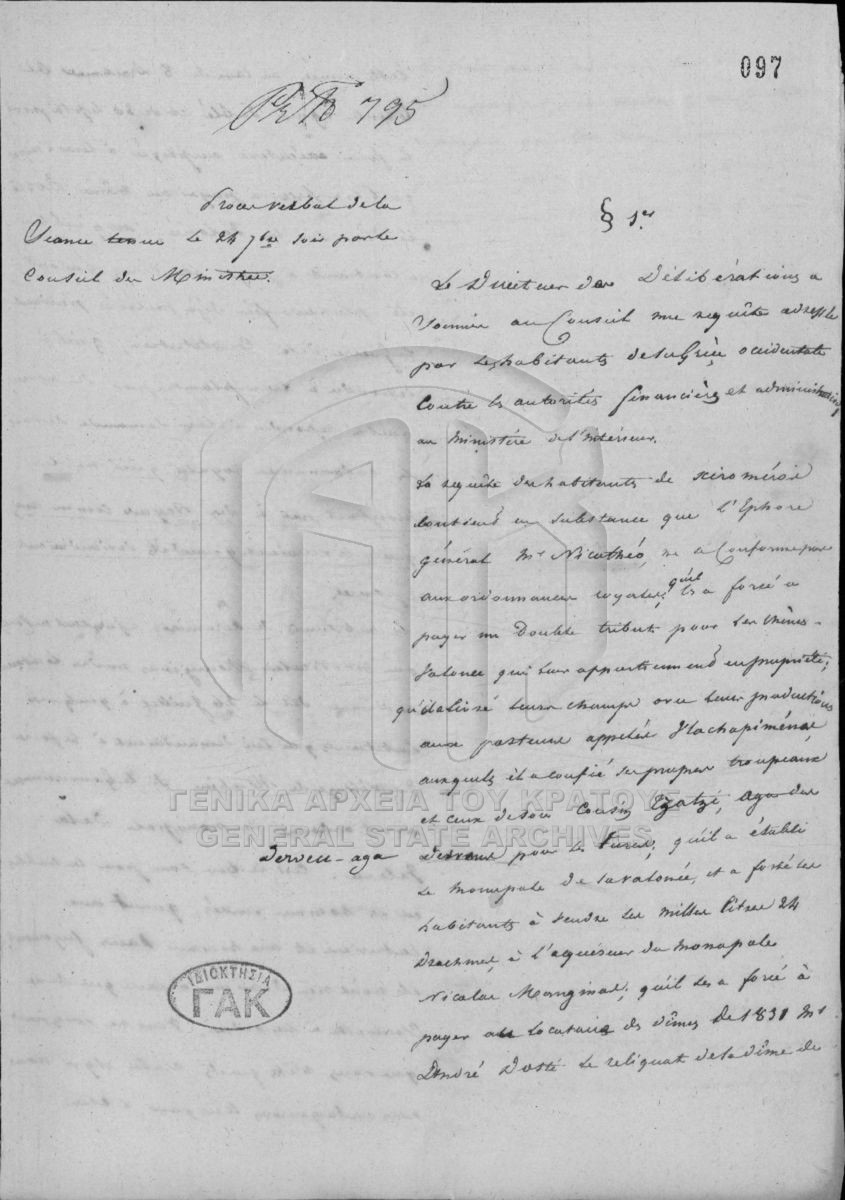 097
795
Proces verbal de la
Seance tenue le 24 7bre soir par le
Conseil des Ministres.
§ 1er
Le Directeur des Délibérations a
donné au Conseil une requête adressée
par les habitants de la Grèce occidentale
contre les autorités financières et administratives
au ministère de l'Intérieur.
La requête des habitants de xiroméros
contient en substance que l'Ephore
général Mr Nicothéo, ne a conforme pas
aux ordonnances royales; qu'il les a forcé a
payer un double tribut pour les chênes-
valonée qui leur appartiennent en propriété;
qu'il a livré leurs champs avec leurs productions
aux pasteurs appelés Vlachopiménas
auxquels il a confié ses propres troupeaux
et ceux de son cousin Tzatzi, aga des
Derveni pour les turcs; qu'il a établi
Derven-aga
le monopole de la valonée, et a forcé les
habitants à vendre les milles litres 24
Drachmes, à l'acquéreur du monopole
Nicolas Manginas; qu'il les a forcé à
payer au locataire des dîmes de 1831 Mr
André le reliquat de la dîme de
ΓΕΝΙΚΑ ΑΡΧΕΙΑ ΤΟΥ ΚΡΑΤΟΥΣ
GENERAL STATE ARCHIVES
ΙΔΙΟΚΤΗΣΙΑ
ΓΑΚ